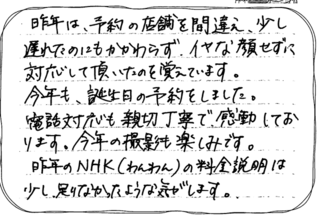 昨年は、予約の店舗を間違え、少し
遅れたのにもかかわらず、イヤな顔せずに
対応して頂いたのを覚えています。
今年も、誕生日の予約をしました。
電話対応も親切丁寧で感動してお
ります。今年の撮影も楽しみです。
昨年のNHK(わんわん)の料金説明は
少し足りなかったような気がします。